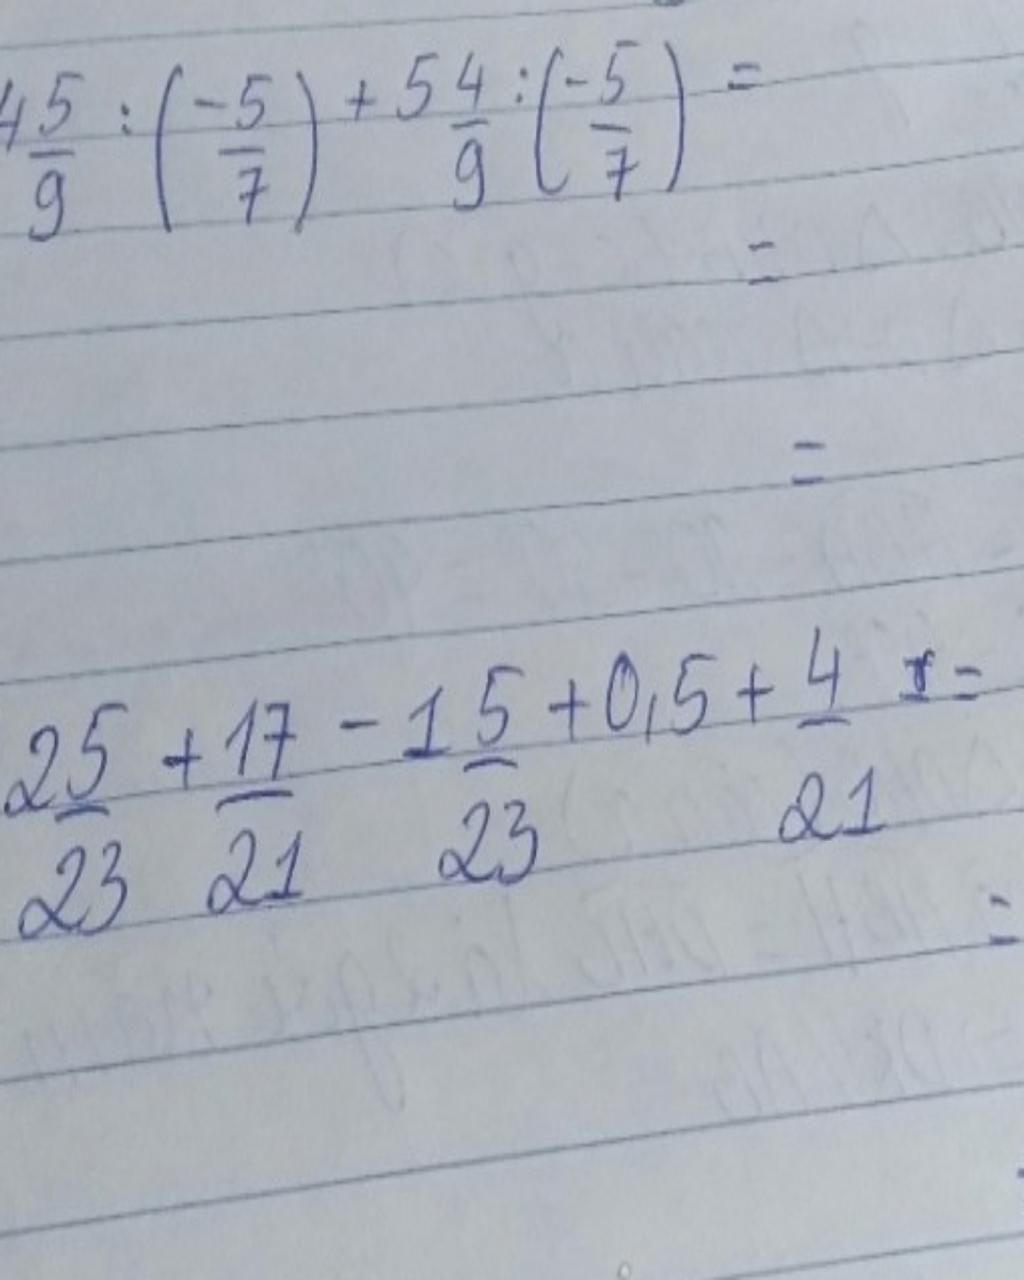 4 5/9 : (-5/7) + 5 4/9 : (-5/7) =
=
=
2 5/23 + 17/21 - 1 5/23 + 0,5 + 4/21 =
=